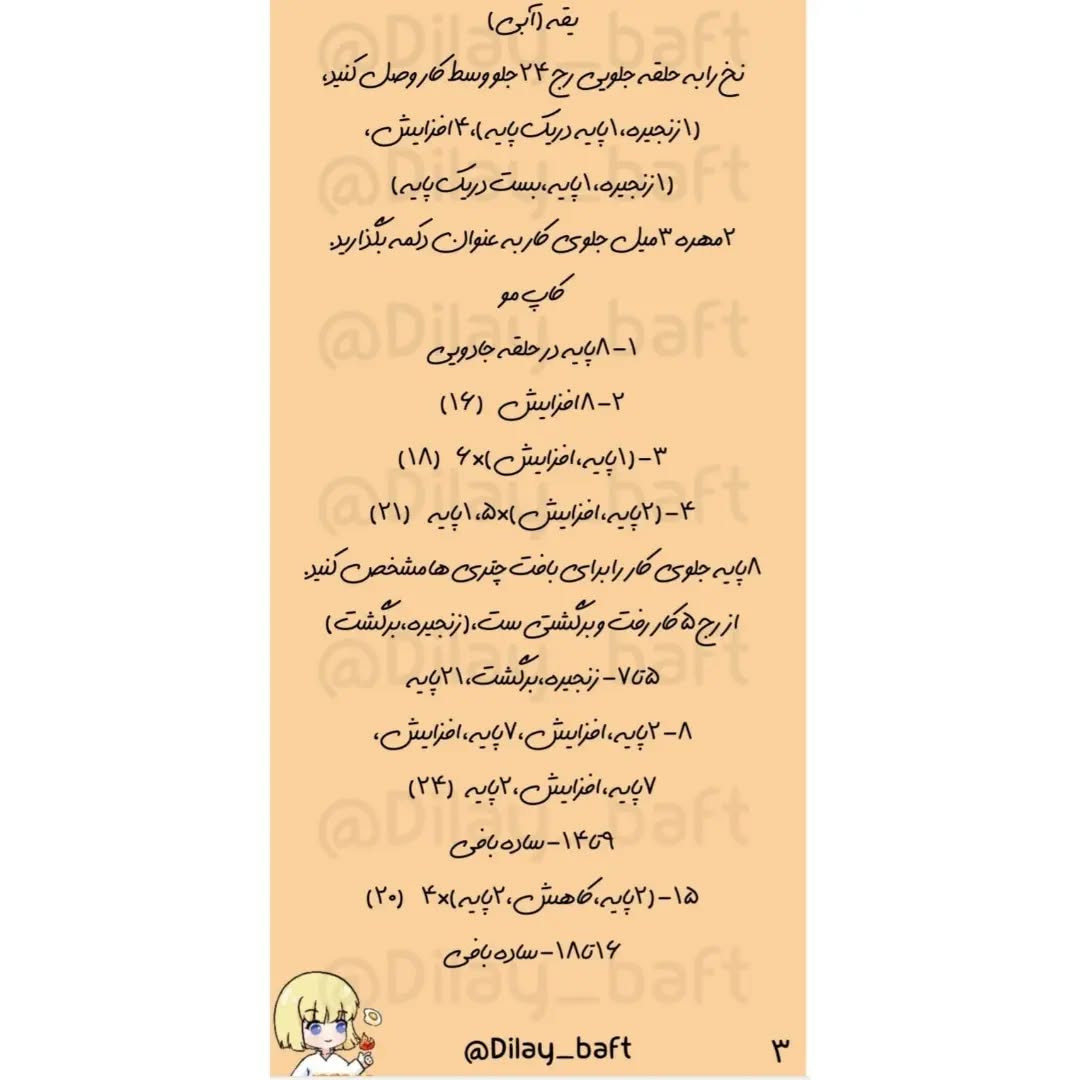 یقه (آبی)
نخ را به حلقه جلویی رج ۲۴ جلو وسط کار وصل کنید،
(۱ زنجیره، ۱ پایه در یک پایه)، ۴ افزایش،
(۱ زنجیره، ۱ پایه، بست در یک پایه)
۲ مهره ۳ میل جلوی کار به عنوان دکمه بگذارید.
کاپ مو
۱-۸ پایه در حلقه جادویی
۲-۸ افزایش (۱۶)
۳-(۱ پایه، افزایش)×۶ (۱۸)
۴-(۲ پایه، افزایش)×۵، ۱ پایه (۲۱)
۸ پایه جلوی کار را برای بافت چتری ها مشخص کنید.
از رج ۵ کار رفت و برگشتی ست، (زنجیره، برگشت)
۵ تا ۷- زنجیره، برگشت، ۲۱ پایه
۸-۲ پایه، افزایش، ۷ پایه، افزایش،
۷ پایه، افزایش، ۲ پایه (۲۴)
۹ تا ۱۴- ساده بافی
۱۵-(۲ پایه، کاهش، ۲ پایه)×۴ (۲۰)
۱۶ تا ۱۸- ساده بافی
@Dilay_baft
۳